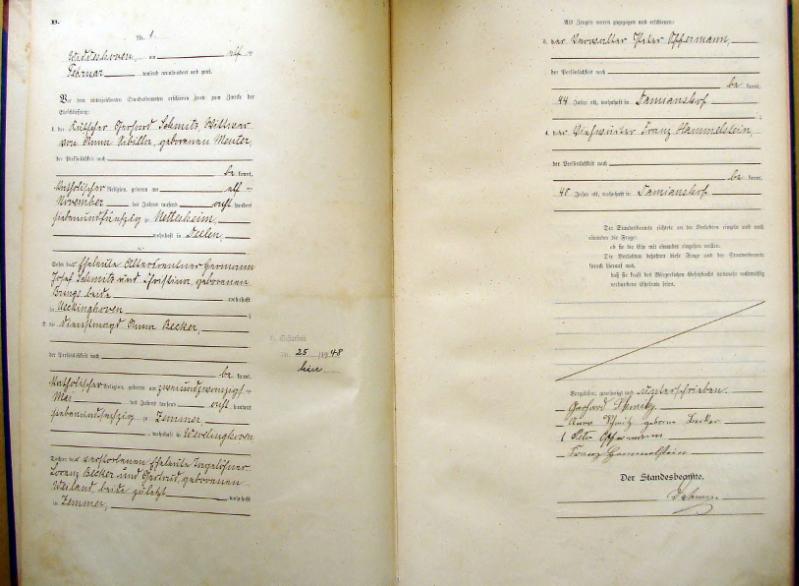 B.
Nr. 1.
Widdeshoven, am elf-
Februar tausend neunhundert und zwei.
Vor dem unterzeichneten Standesbeamten erschienen heute zum Zwecke der
Eheschließung:
1. der Kutscher Gerhard Schmitz, Wittwer
von Anna Sibilla, geborenen Meuter,
der Persönlichkeit nach
be kannt,
katholischer Religion, geboren am elf-
November des Jahres tausend acht hundert
siebenundfünfzig zu Nettesheim,
wohnhaft in Deelen,
Sohn der Eheleute Altersrentner Hermann
Josef Schmitz und Christina, geborenen
Bungs beide wohnhaft
in Ueckinghoven;
2. die Dienstmagd Anna Becker,
der Persönlichkeit nach
be kannt,
katholischer Religion, geboren am zweiundzwanzigs-
Mai des Jahres tausend acht hundert
siebenundsechzig zu Zemmer,
wohnhaft in Wevelinghoven
Tochter der verstorbenen Eheleute Tagelöhner
Lorenz Becker und Gertrud, geborenen
Weiland, beide zuletzt wohnhaft
in Zemmer,
Nr. 25 /1948
Als Zeugen waren zugezogen und erschienen:
3. der Verwalter Peter Offermann,
der Persönlichkeit nach
be kannt,
44 Jahre alt, wohnhaft in Damianshof
4. der Viehwärter Franz Hammelstein,
der Persönlichkeit nach
be kannt,
40 Jahre alt, wohnhaft in Damianshof
Der Standesbeamte richtete an die Verlobten einzeln und nach
einander die Frage:
ob sie die Ehe mit einander eingehen wollen.
Die Verlobten bejahten diese Frage und der Standesbeamte
sprach hierauf aus,
daß sie kraft des Bürgerlichen Gesetzbuchs nunmehr rechtmäßig
verbundene Eheleute seien.
Vorgelesen, genehmigt und unterschrieben.
Gerhard Schmitz
Anna Schmitz geborne Becker
Peter Offermann
Franz Hammelstein
Der Standesbeamte.